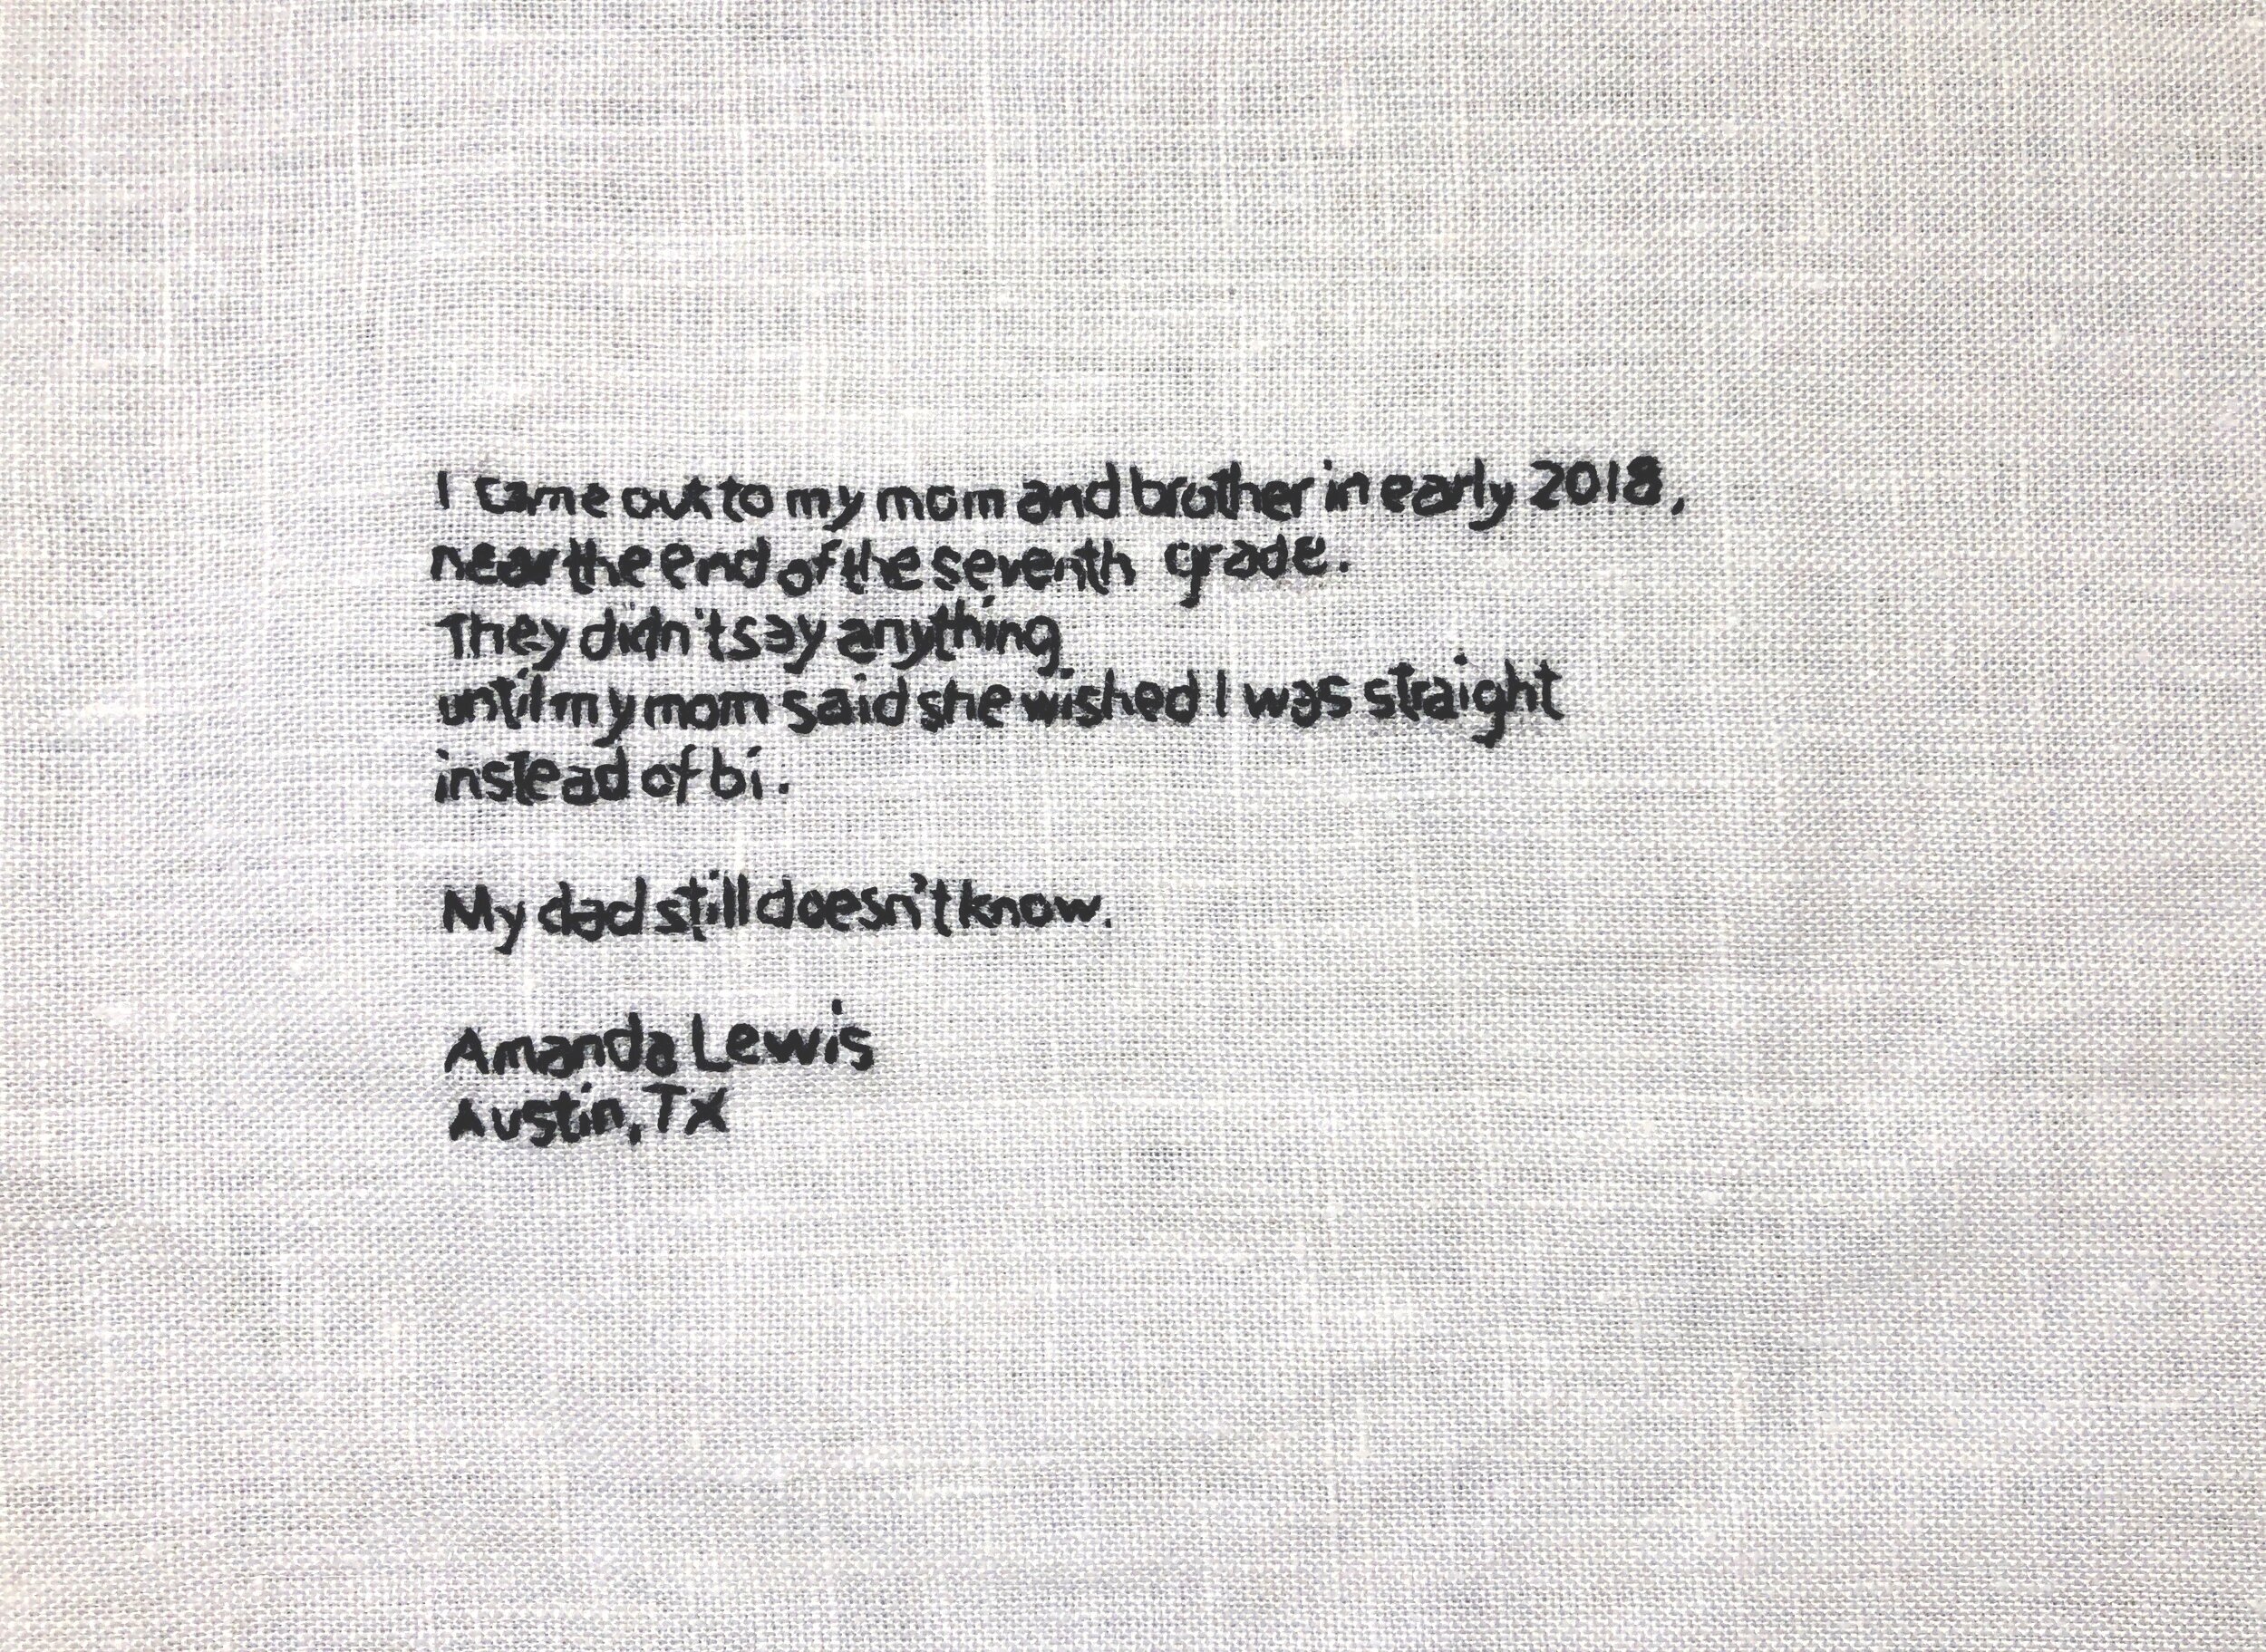 I came out to my mom and brother in early 2018,
near the end of the seventh grade.
They didn't say anything
until my mom said she wished I was straight
instead of bi.
My dad still doesn't know.
Amanda Lewis
Austin, TX